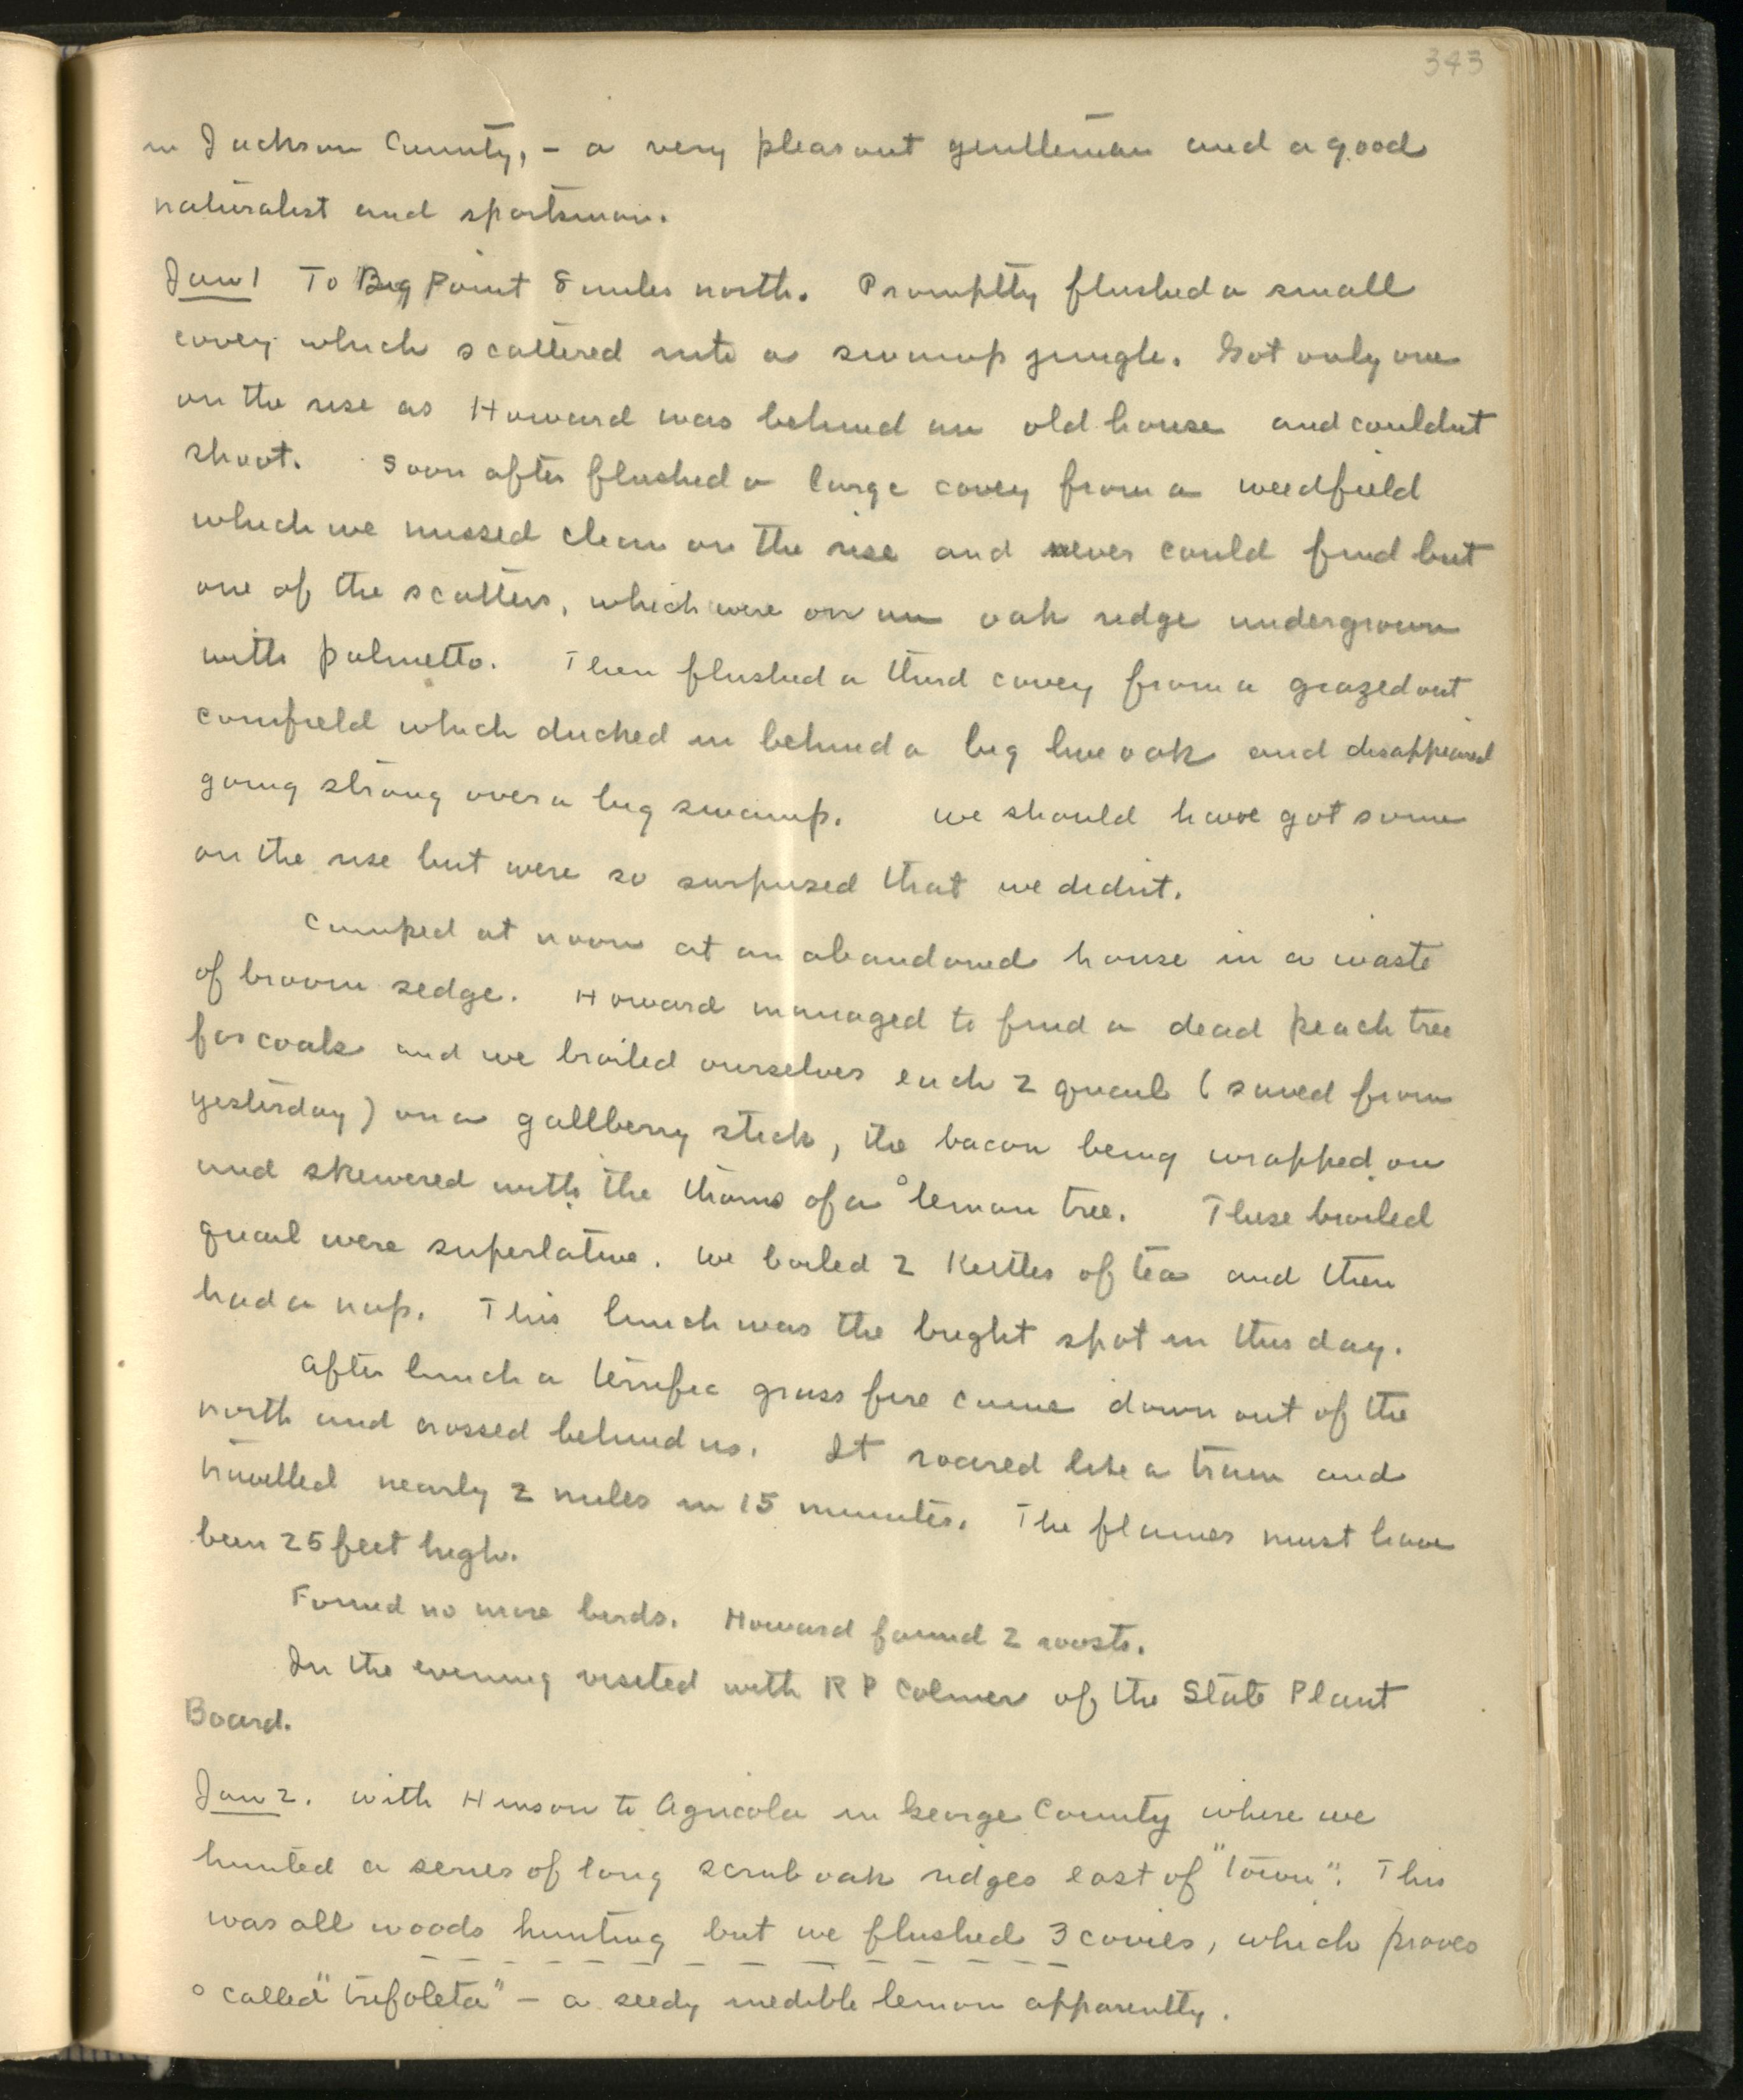 343
in Jackson County, - a very pleasant gentleman and a good
naturalist and sportsman.
Jan 1 To Big Point 8 miles north. Promptly flushed a small
covey which scattered into a swamp jungle. Got only one
on the rise as Howard was behind an old house and couldnt
shoot. Soon after flushed a large covey from a weedfield
which we missed clean on the rise and never could find but
one of the scatters, which were on an oak ridge undergrown
with palmetto. Then flushed a third covey from a grazed out
cornfield which ducked in behind a big live oak and disappeared
going strong over a big swamp. We should have got some
on the rise but were so surprised that we didnt.
Camped at noon at an abandoned house in a waste
of broom sedge. Howard managed to find a dead peach tree
for coals and we broiled ourselves each 2 quail (saved from
yesterday) on a gallberry stick, the bacon being wrapped on
and skewered with the thorns of a ° lemon tree. These broiled
quail were superlative. We boiled 2 kettles of tea and then
had a nap. This lunch was the bright spot in this day.
After lunch a terrific grass fire came down out of the
north and crossed behind us. It roared like a train and
travelled nearly 2 miles in 15 minutes. The flames must have
been 25 feet high.
Found no more birds. Howard found 2 roosts.
In the evening visited with R P Colmer of the State Plant
Board.
Jan 2. With Hinson to Agricola in George County where we
hunted a series of long scrub oak ridges east of "town". This
was all woods hunting but we flushed 3 covies, which proves
° called "trifoleta" - a seedy inedible lemon apparently.